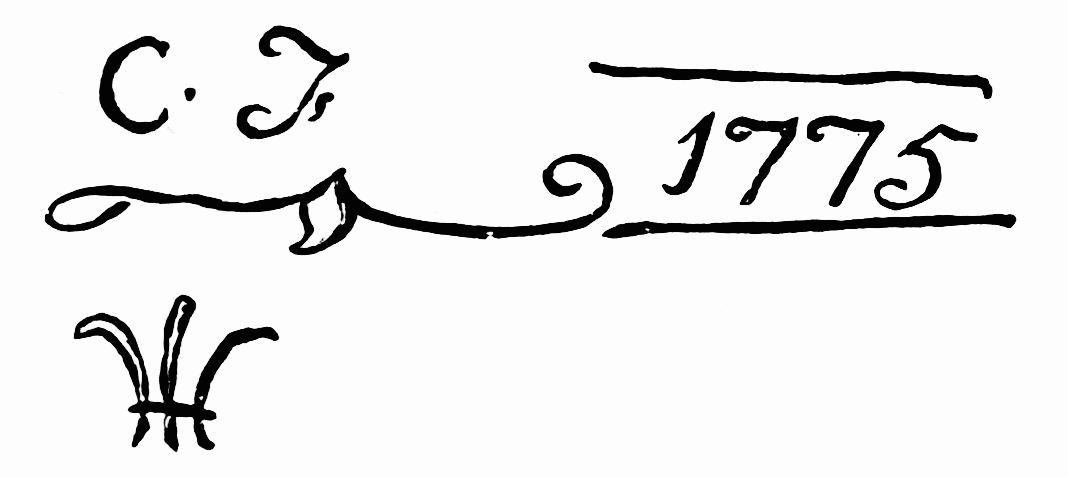 C. J.
1775